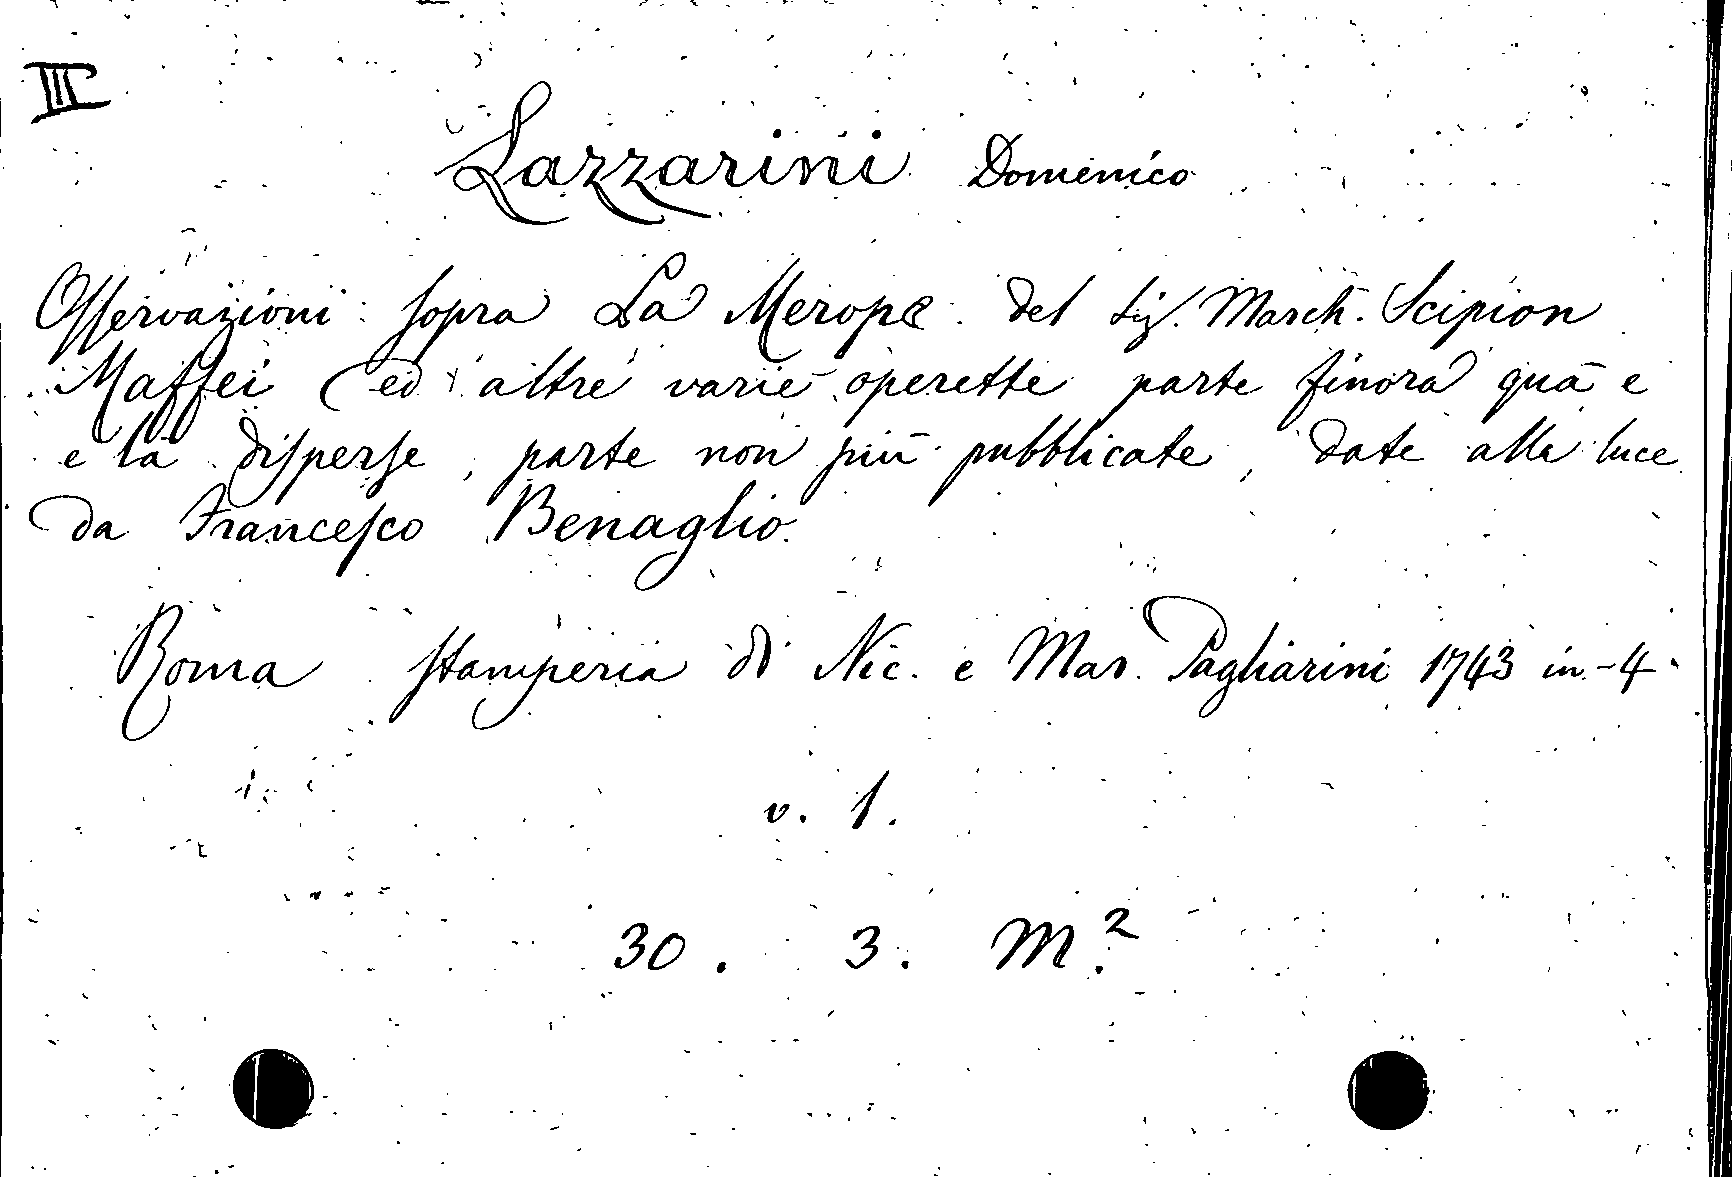 III
Lazzarini Domenico
Osservazioni sopra La Merope del Sig. March. Scipion
Maffei ed altre varie operette parte finora quà e
e là disperse, parte non più pubblicate, date alla luce
da Francesco Benaglio.
Roma stamperia di Nic. e Mar. Pagliarini 1743 in-4.
v. 1.
30. 3. M.²